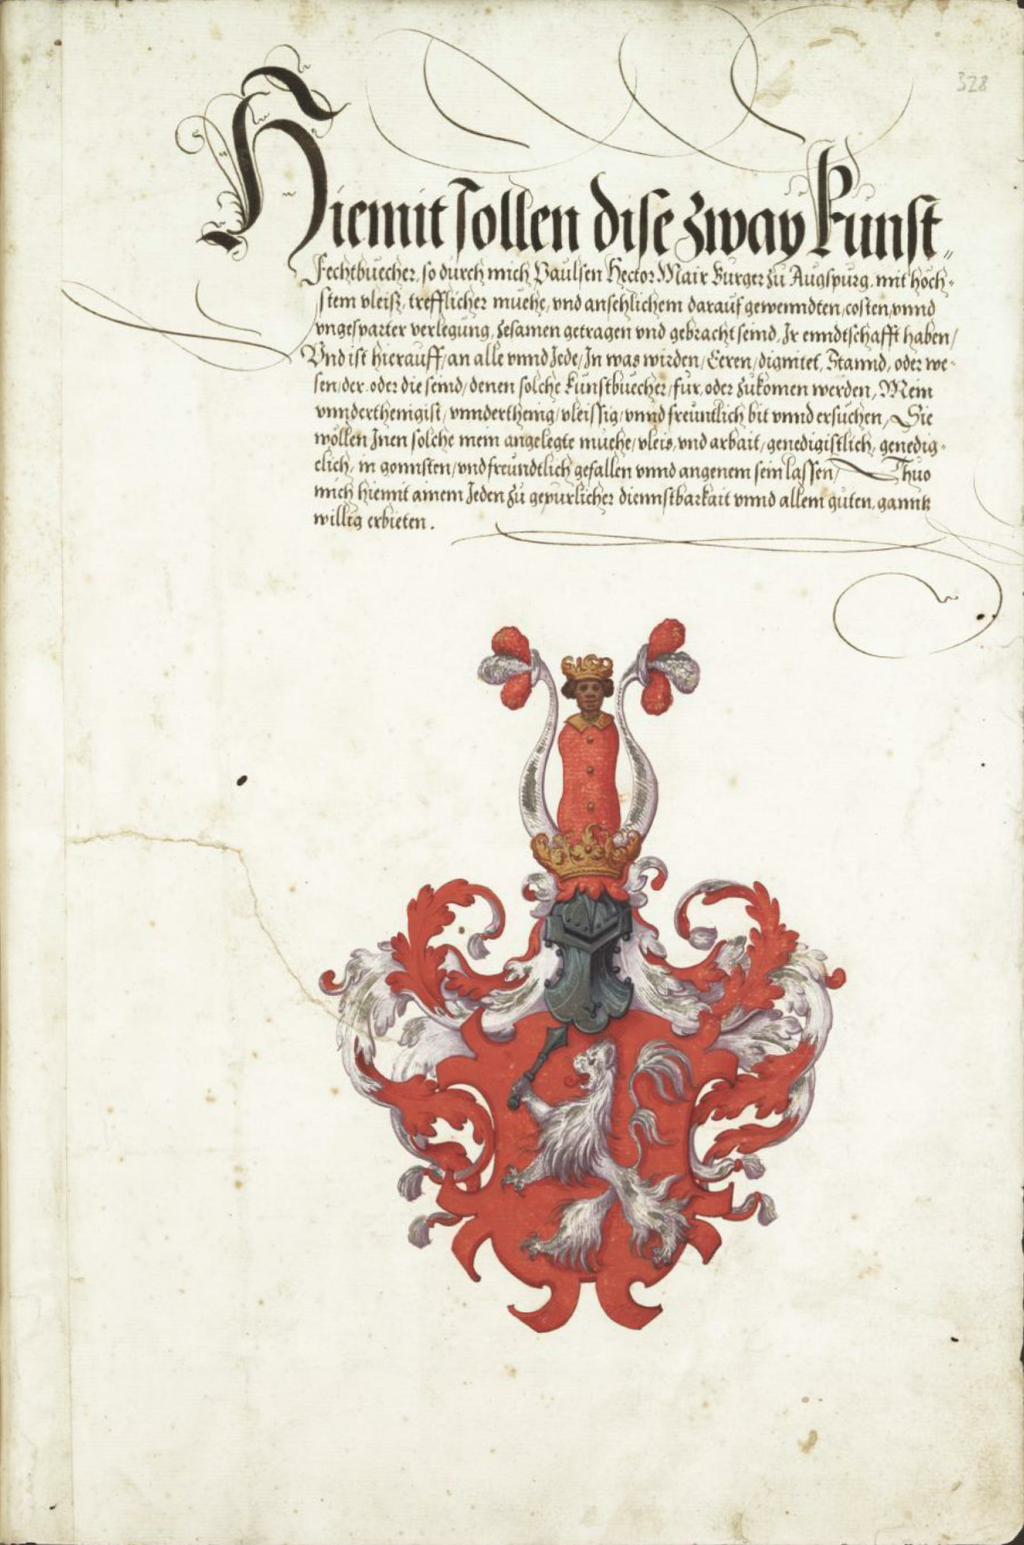 328
Hiemit sollen dise zway kunst„
Fechtbuecher, so durch mich Paulsen Hector Mair Burger zu Augspurg, mit höch„
stem vleiß, trefflicher muehe, vnd anschlichem darauf gewenndten, costen, vnnd
vngesparter verlegung, zesamen getragen vnd gebracht seind, Ir enndtschafft haben,
Vnd ist hierauff, an alle vnnd Jede, In was wirden, Eeren, dignitet, Stannd, oder we„
sen, der oder die seind, denen solche kunstbuecher, für, oder zukomen werden, Mein
vnnderthenigist, vnnderthenig, vleissig, vnnd freuntlich bit vnnd ersuchen, Sie
wöllen Inen solche mein angelegte muehe, vleis, vnd arbait, genedigistlich, genedig„
clich, in gonnsten, vnd freundtlich gefallen vnnd angenem sein lassen, Thuo
mich hiemit ainem Jeden zu gepurlicher diennstbarkait vnnd allem guten, ganntz
willig erbieten.